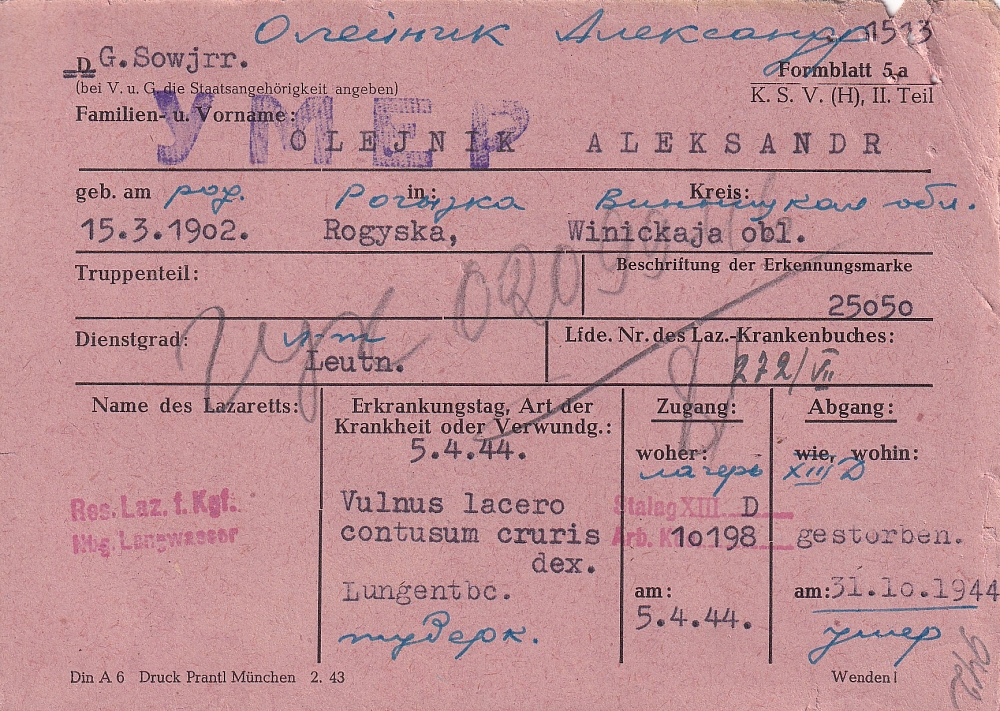 Олейник Александр 1513
D G.Sowjrr.
(bei V. u. G. die Staatsangehörigkeit angeben)
Formblatt 5a
K. S. V. (H), II. Teil
УМЕР
Familien- u. Vorname:
OLEJNIK ALEKSANDR
geb. am in: Kreis:
род. Рогызка Винницкая обл.
15.3.1902. Rogyska, Winickaja obl.
Truppenteil:
Beschriftung der Erkennungsmarke
25050
Dienstgrad:
Leutn.
Lfde. Nr. des Laz.-Krankenbuches:
272/VII
Name des Lazaretts:
Res. Laz. f. Kgf.
Nbg. Langwasser
Erkrankungstag, Art der
Krankheit oder Verwundg.:
5.4.44.
Vulnus lacero
contusum cruris
dex.
Lungentbc.
туберк.
Zugang:
woher:
лагерь XIII D
Stalag XIII D
Arb. 10198
am:
5.4.44.
Abgang:
wie, wohin:
gestorben.
am: 31.10.1944
умер
Din A 6 Druck Prantl München 2. 43
Wenden!